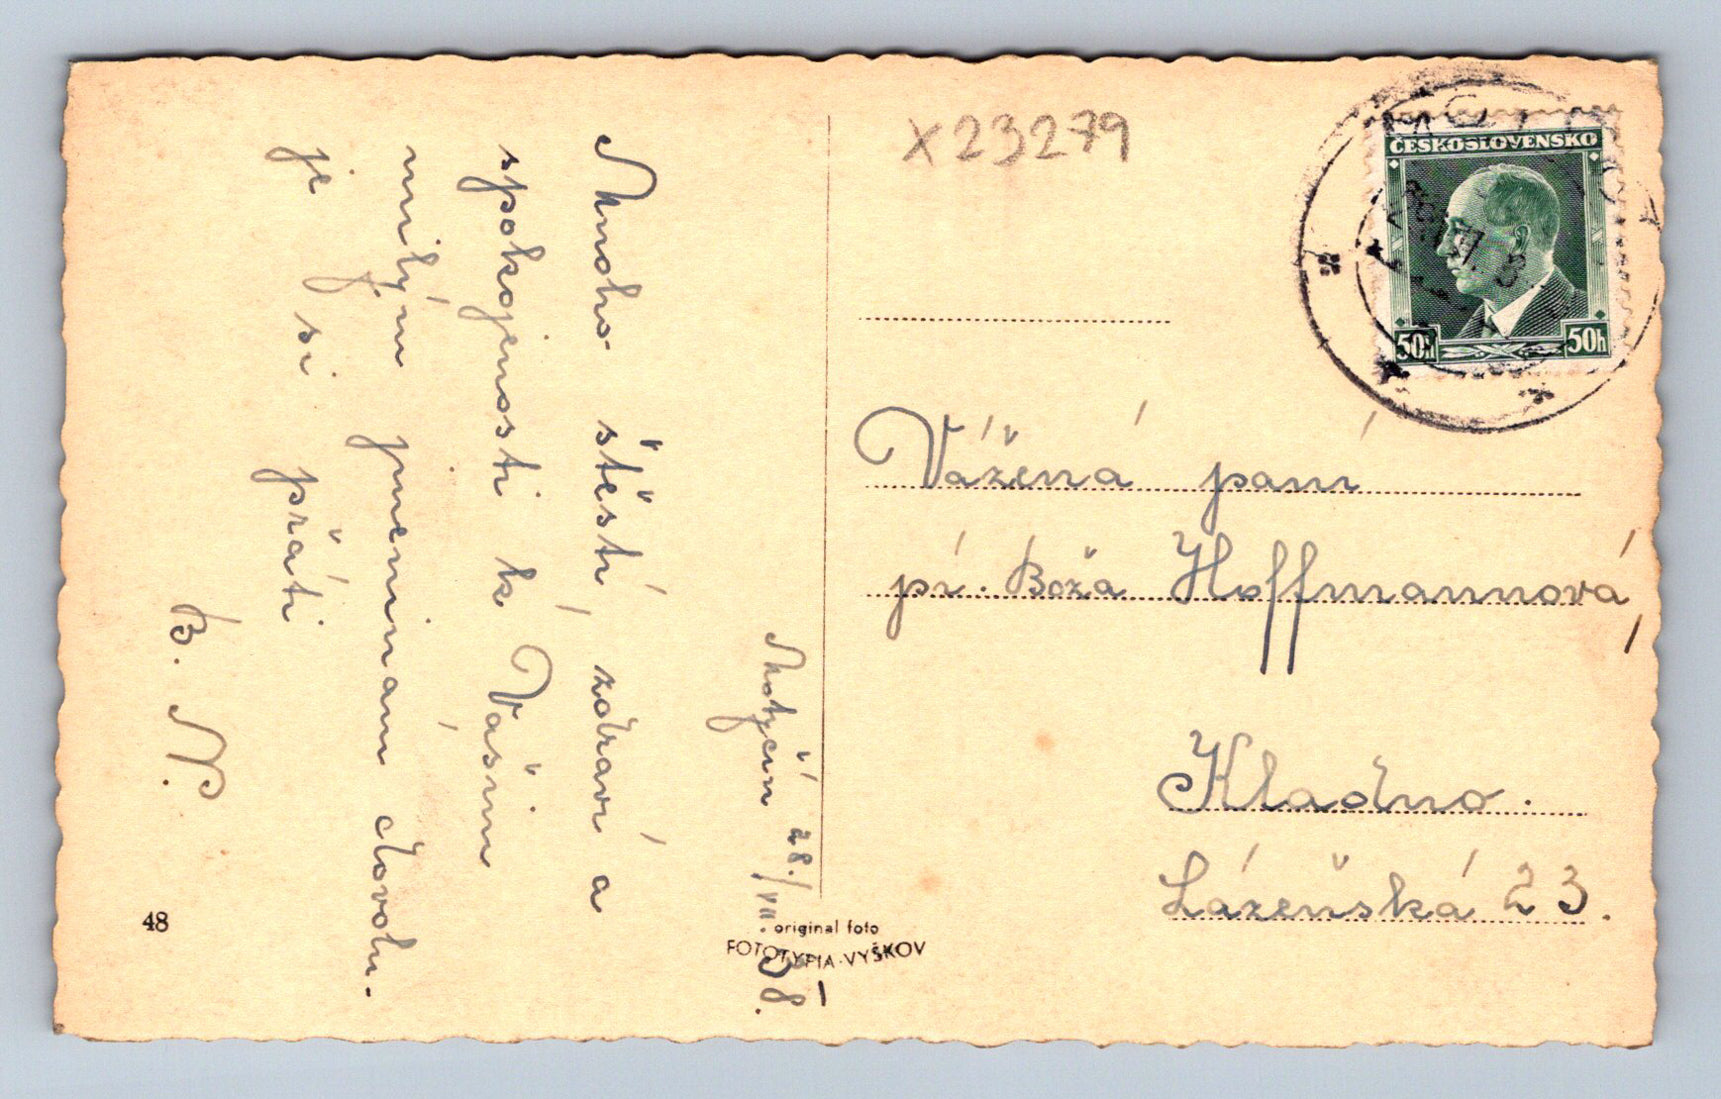 Motyčín 28./VII 38.
Mnoho štěstí, zdraví a
spokojenosti k Vašim
milým jmeninam dovolu-
je si přáti
B. N.
48
original foto
FOTOTYPIA-VYŠKOV
X23279
ČESKOSLOVENSKO
50h
50h
Vážená paní
pí. Boža Hoffmannová,
Kladno.
Lázeňská 23.